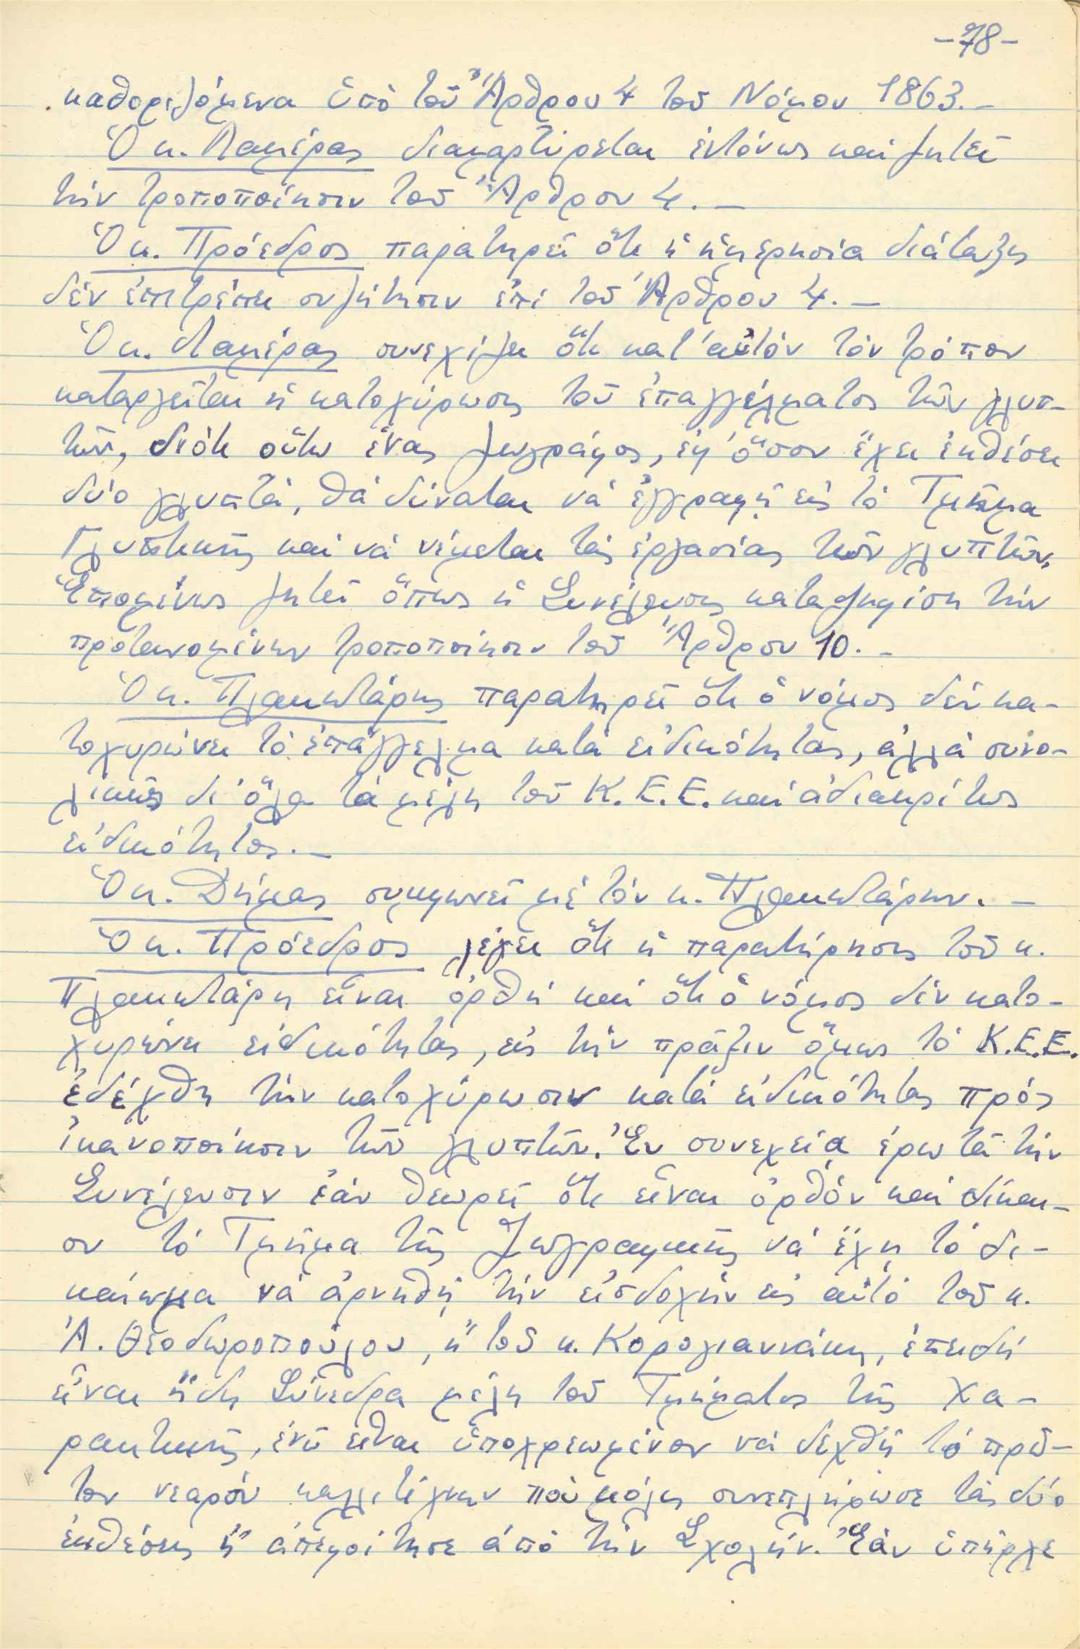 -78-
καθοριζόμενα ὑπὸ τοῦ Ἄρθρου 4 τοῦ Νόμου 1863.-
Ὁ κ. Λαμέρας διαμαρτύρεται ἐντόνως καί ζητεῖ
τήν τροποποίησιν τοῦ Ἄρθρου 4.-
Ὁ κ. Πρόεδρος παρατηρεῖ ὅτι ἡ ἡμερησία διάταξις
δέν ἐπιτρέπει συζήτησιν ἐπί τοῦ Ἄρθρου 4.-
Ὁ κ. Λαμέρας συνεχίζει ὅτι κατ' αὐτόν τόν τρόπον
καταργεῖται ἡ κατοχύρωσις τοῦ ἐπαγγέλματος τῶν γλυπ-
τῶν, διότι οὕτω ἕνας ζωγράφος, ἐφ' ὅσον ἔχει ἐκθέσει
δύο γλυπτά, θά δύναται νά ἐγγραφῇ εἰς τό Τμῆμα
Γλυπτικῆς καί νά νέμεται τάς ἐργασίας τῶν γλυπτῶν.
Ἑπομένως ζητεῖ ὅπως ἡ Συνέλευσις καταψηφίσῃ τήν
προτεινομένην τροποποίησιν τοῦ Ἄρθρου 10.-
Ὁ κ. Πλακωτάρης παρατηρεῖ ὅτι ὁ νόμος δέν κα-
τοχυρώνει τό ἐπάγγελμα κατά εἰδικότητας, ἀλλά συνο-
λικῶς δι' ὅλα τά μέλη τοῦ Κ.Ε.Ε. καί ἀδιακρίτως
εἰδικότητος.-
Ὁ κ. Δήμας συμφωνεῖ μέ τόν κ. Πλακωτάρην.-
Ὁ κ. Πρόεδρος λέγει ὅτι ἡ παρατήρησις τοῦ κ.
Πλακωτάρη εἶναι ὀρθή καί ὅτι ὁ νόμος δέν κατο-
χυρώνει εἰδικότητας, εἰς τήν πρᾶξιν ὅμως τό Κ.Ε.Ε.
ἐδέχθη τήν κατοχύρωσιν κατά εἰδικότητας πρός
ἱκανοποίησιν τῶν γλυπτῶν. Ἐν συνεχείᾳ ἐρωτᾶ τήν
Συνέλευσιν ἐάν θεωρεῖ ὅτι εἶναι ὀρθόν καί δίκαι-
ον τό Τμῆμα τῆς Ζωγραφικῆς νά ἔχῃ τό δι-
καίωμα νά ἀρνηθῇ τήν εἰσδοχήν εἰς αὐτό τοῦ κ.
Ἀ. Θεοδωροπούλου, ἤ τοῦ κ. Κορογιαννάκη, ἐπειδή
εἶναι ἤδη Σύνεδρα μέλη τοῦ Τμήματος τῆς Χα-
ρακτικῆς, ἐνῶ εἶναι ὑποχρεωμένον νά δεχθῇ τό πρῶ-
τον νεαρόν καλλιτέχνην πού μόλις συνεπλήρωσε τάς δύο
ἐκθέσεις ἤ ἀπεφοίτησε ἀπό τήν Σχολήν. Ἐάν ὑπῆρχε